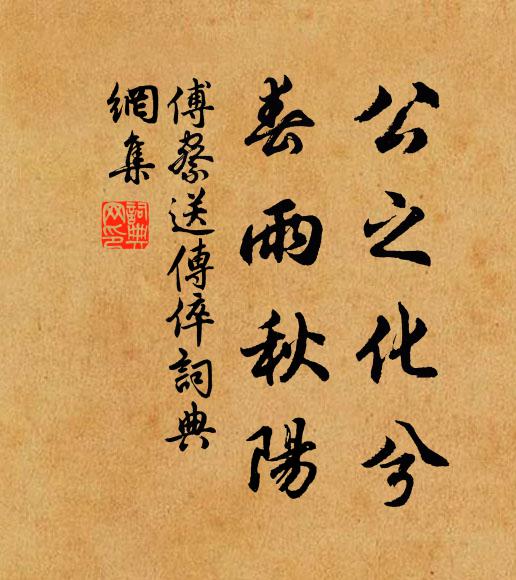 公之化兮
春雨秋陽
傅察送傅倅詞典
網集
詞典
网印